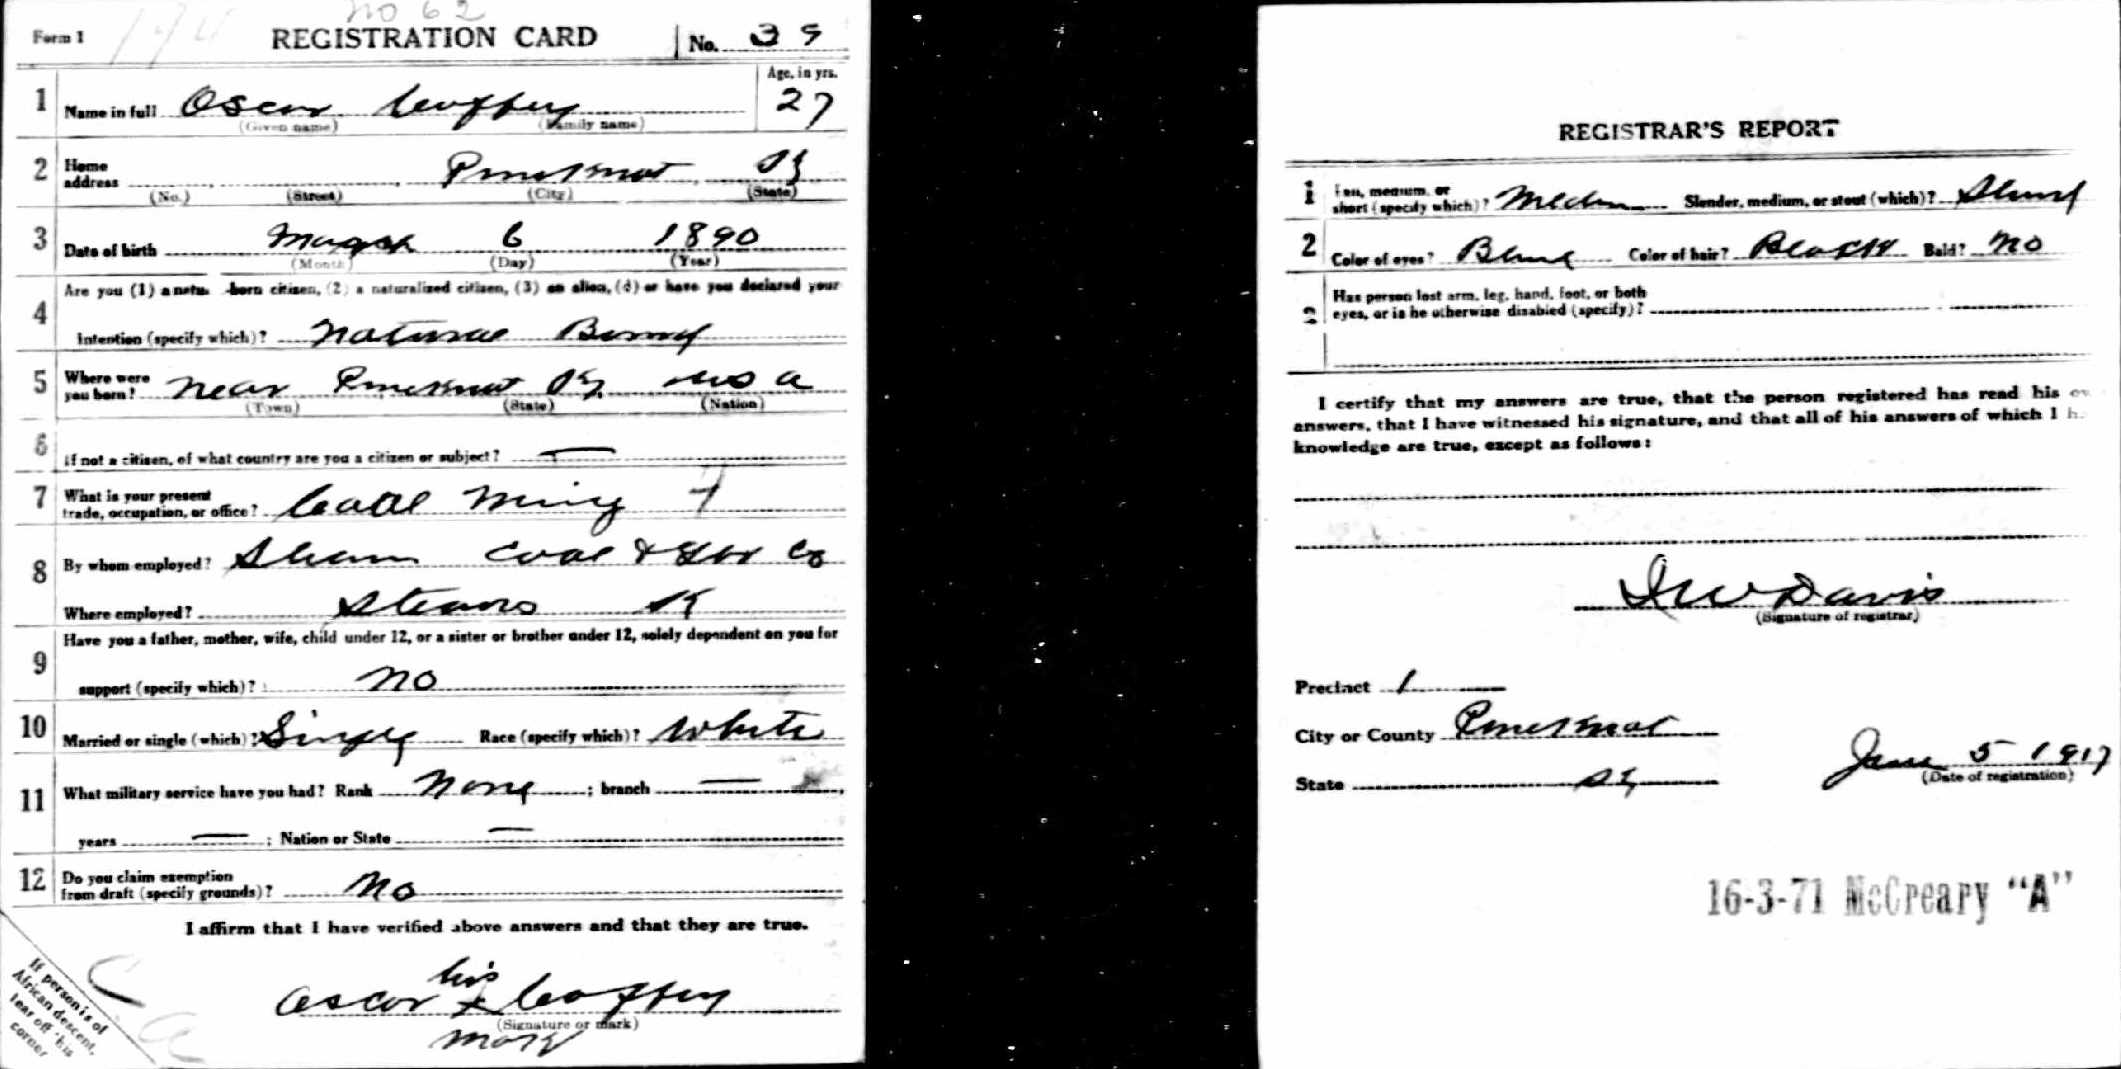 no 62
Form 1 174 REGISTRATION CARD No. 39
Age, in yrs.
1 Name in full Oscar Coffey 27
(Given name) (Family name)
2 Home address Pineknot Ky
(No.) (Street) (City) (State)
3 Date of birth March 6 1890
(Month) (Day) (Year)
4 Are you (1) a natu -born citizen, (2) a naturalized citizen, (3) an alien, (4) or have you declared your
intention (specify which)? Natural Born
5 Where were you born? near Pineknot Ky. U S a
(Town) (State) (Nation)
6 If not a citizen, of what country are you a citizen or subject? —
7 What is your present trade, occupation, or office? Coal Mining 7
8 By whom employed? Stearns Coal & Co
Where employed? Stearns K
9 Have you a father, mother, wife, child under 12, or a sister or brother under 12, solely dependent on you for
support (specify which)? no
10 Married or single (which)? Single Race (specify which)? White
11 What military service have you had? Rank None ; branch —
years — ; Nation or State —
12 Do you claim exemption from draft (specify grounds)? No
I affirm that I have verified above answers and that they are true.
his
Oscar x Coffey
(Signature or mark)
mark
If person is of
African descent,
tear off this
corner
REGISTRAR'S REPORT
1 Tall, medium, or short (specify which)? Medium Slender, medium, or stout (which)?
2 Color of eyes? Blue Color of hair? Black Bald? No
3 Has person lost arm, leg, hand, foot, or both
eyes, or is he otherwise disabled (specify)?
I certify that my answers are true, that the person registered has read his
answers, that I have witnessed his signature, and that all of his answers of which I h
knowledge are true, except as follows:
I W Davis
(Signature of registrar)
Precinct 1
City or County Pineknot
State Ky
June 5 1917
(Date of registration)
16-3-71 McCreary "A"